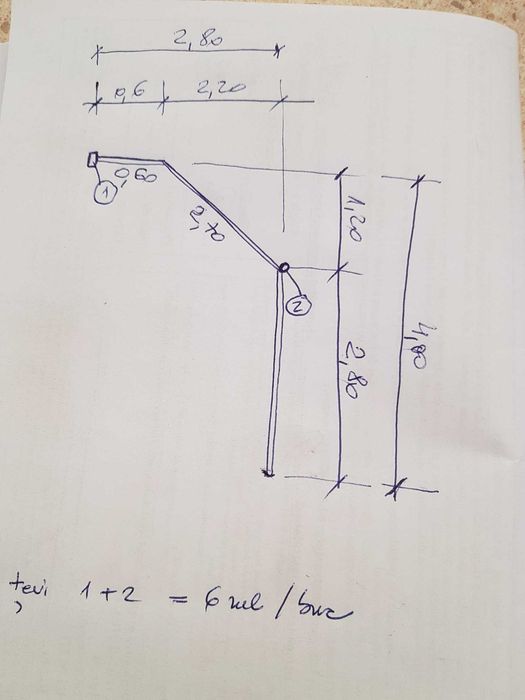 2,80
0,6 2,20
0,60
1
2,70
1,20
2
2,80
4,00
țevi 1+2 = 6 ml/buc